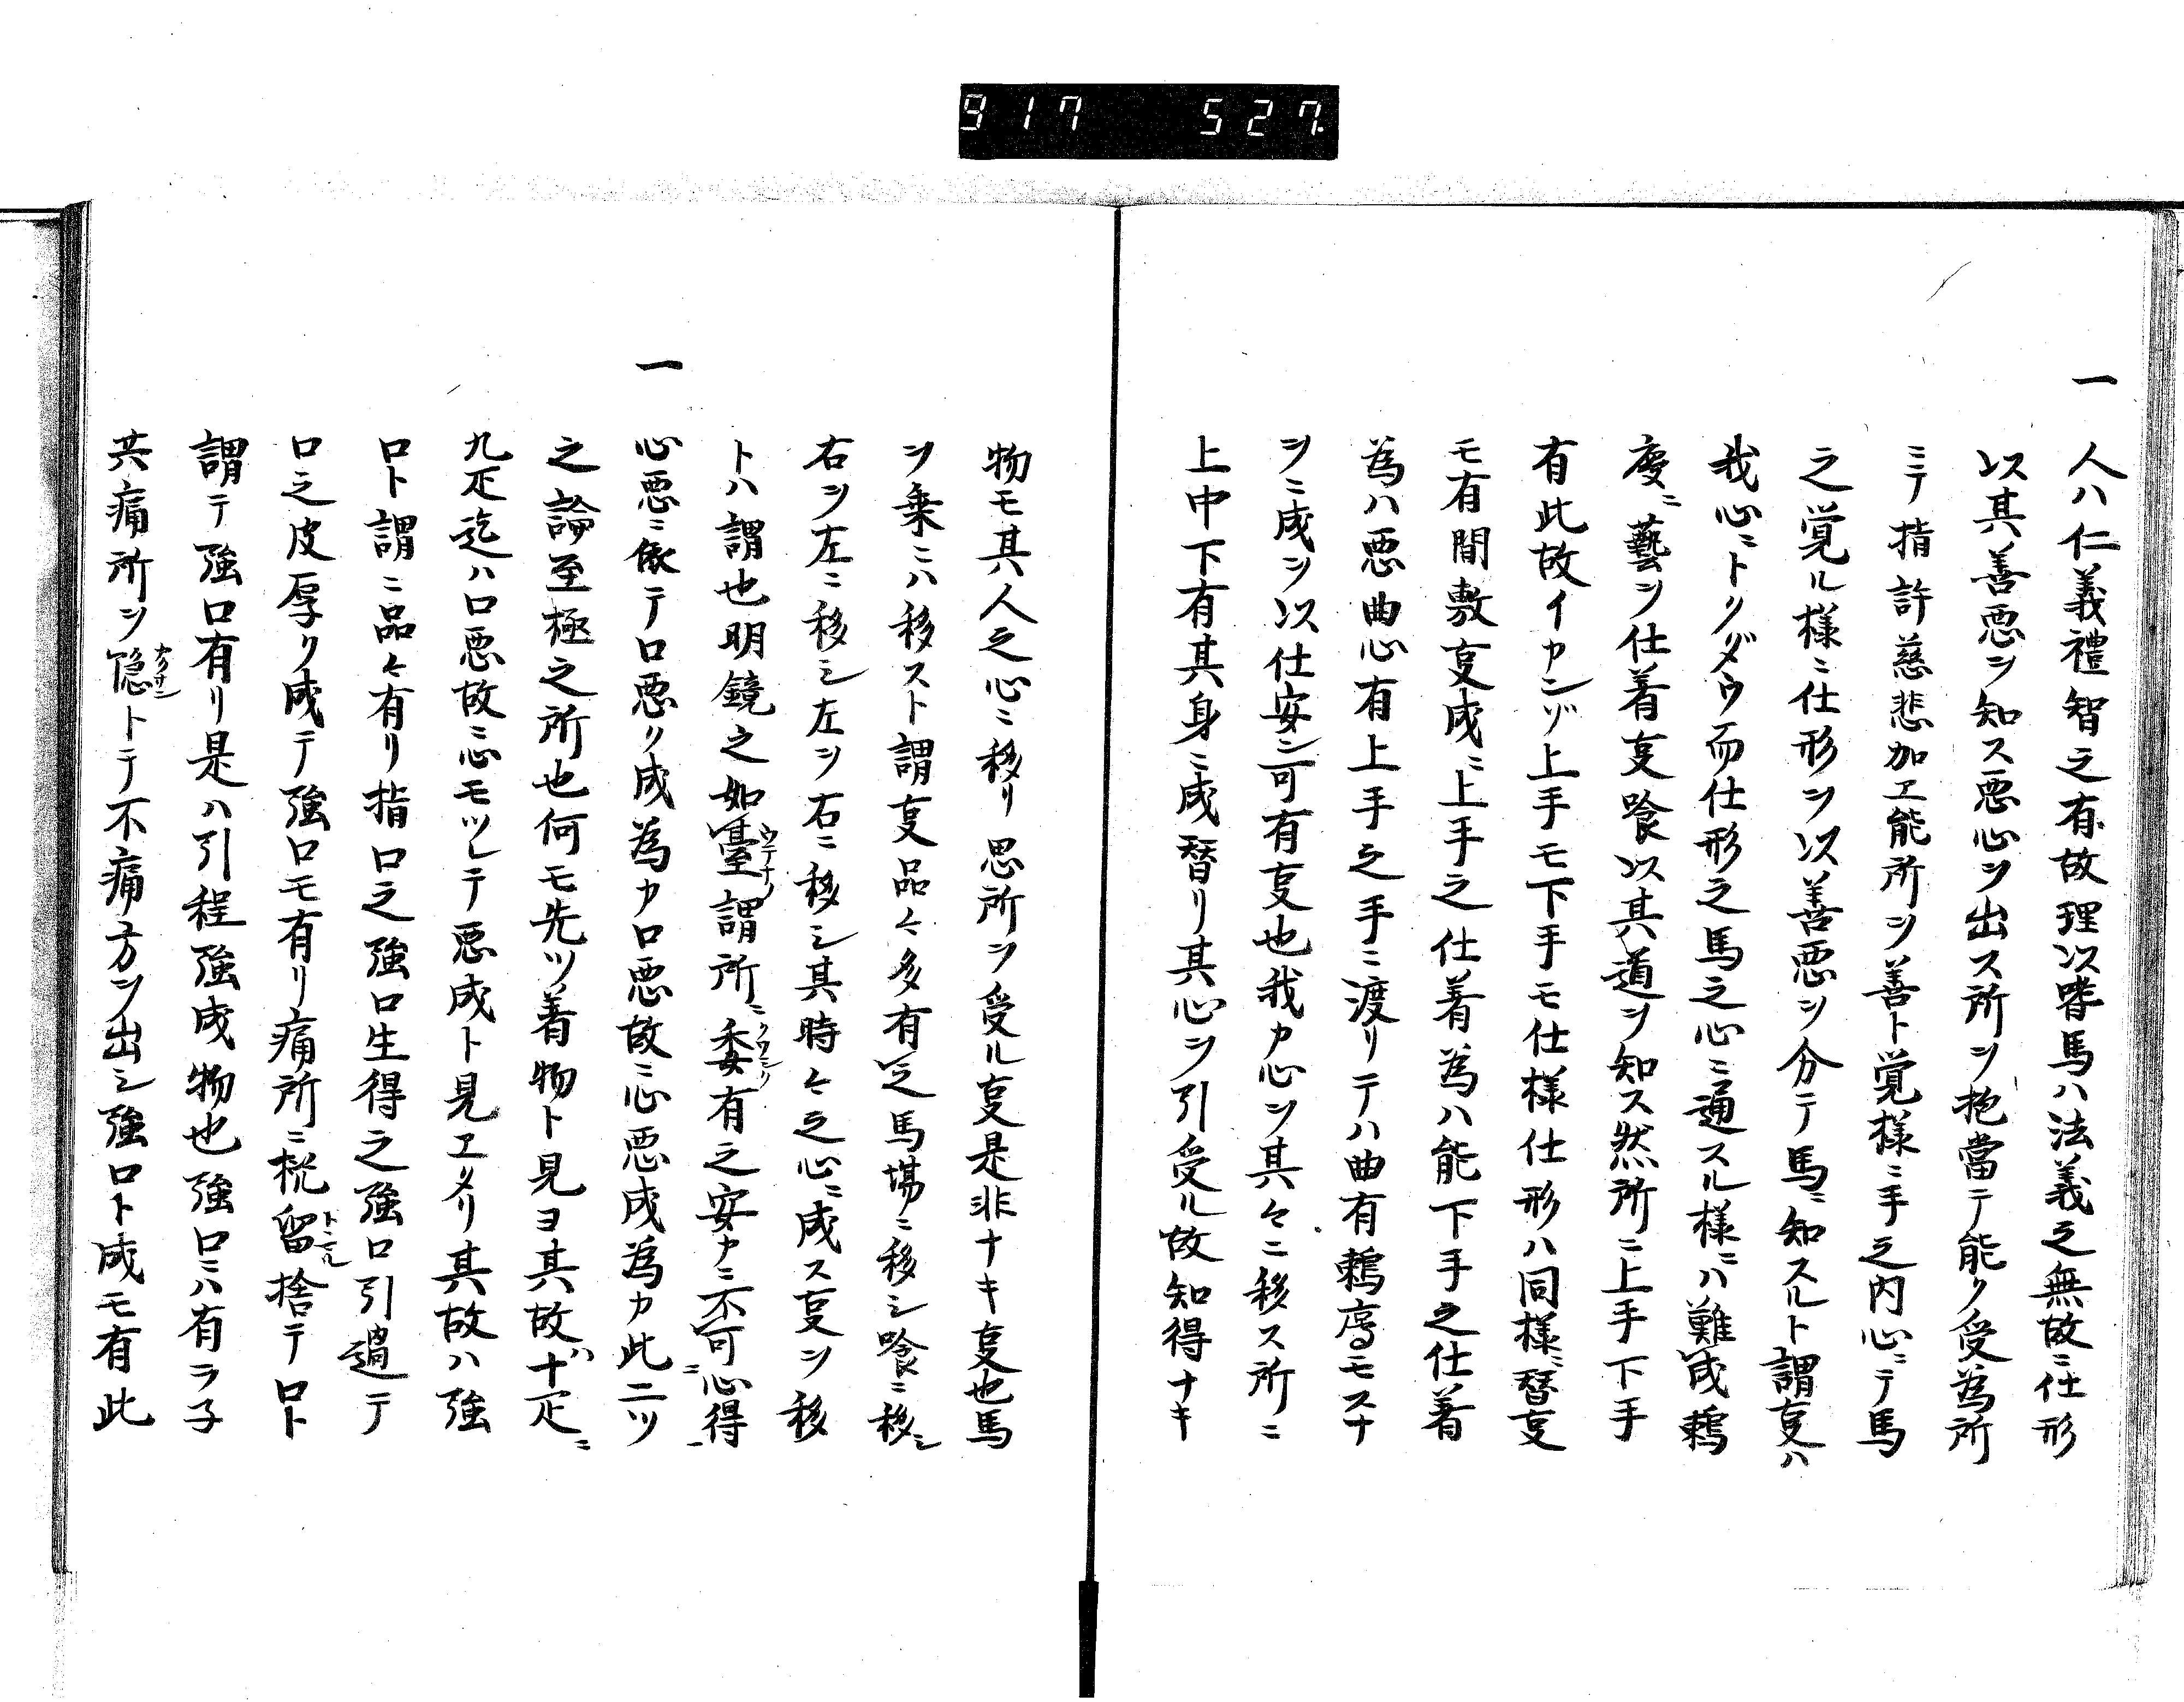 917 527
一 人ハ仁義禮智之有故理以嗜馬ハ法義之無故ニ仕形
以其善悪ヲ知ス悪心ヲ出ス所ヲ抱當テ能ク受為所
ニテ指許慈悲加エ能所ヲ善ト覚様ニ手之内心ニテ馬
之覚ル様ニ仕形ヲ以善悪ヲ分テ馬ニ知スルト謂叓ハ
我心ニトクダウ而仕形之馬之心ニ通スル様ニハ難成鶉
度ニ藝ヲ仕着叓喰以其道ヲ知ス然所ニ上手下手
有此故イカンゾ上手モ下手モ仕様仕形ハ同様ニ替叓
モ有間敷叓成ニ上手之仕着為ハ能下手之仕着
為ハ悪曲心有上手之手ニ渡リテハ曲有鶉庤モスナ
ヲニ成ヲ以仕安シ可有叓也我カ心ヲ其々ニ移ス所ニ
上中下有其身ニ成替リ其心ヲ引受ル故知得ナキ
物モ其人之心ニ移リ思所ヲ受ル叓是非ナキ叓也馬
ヲ乗ニハ移スト謂叓品々多有之馬場ニ移シ喰ニ移シ
右ヲ左ニ移シ左ヲ右ニ移シ其時々之心ニ成ス叓ヲ移
トハ謂也明鏡之如臺謂所ニ委有之安カニ不可心得
一 心悪ニ依テ口悪ク成為カ口悪故ニ心悪成為カ此二ツ
之論至極之所也何モ先ツ着物ト見ヨ其故ハ十疋ニ
九疋迄ハ口悪故ニ心モツレテ悪成ト見エタリ其故ハ強
口ト謂ニ品々有リ指口之強口生得之強口引過テ
口之皮厚ク成テ強口モ有リ痛所ニ枕留捨テ口ト
謂テ強口有リ是ハ引程強成物也強口ニハ有ラ子
共痛所ヲ隠トテ不痛方ヲ出シ強口ト成モ有此